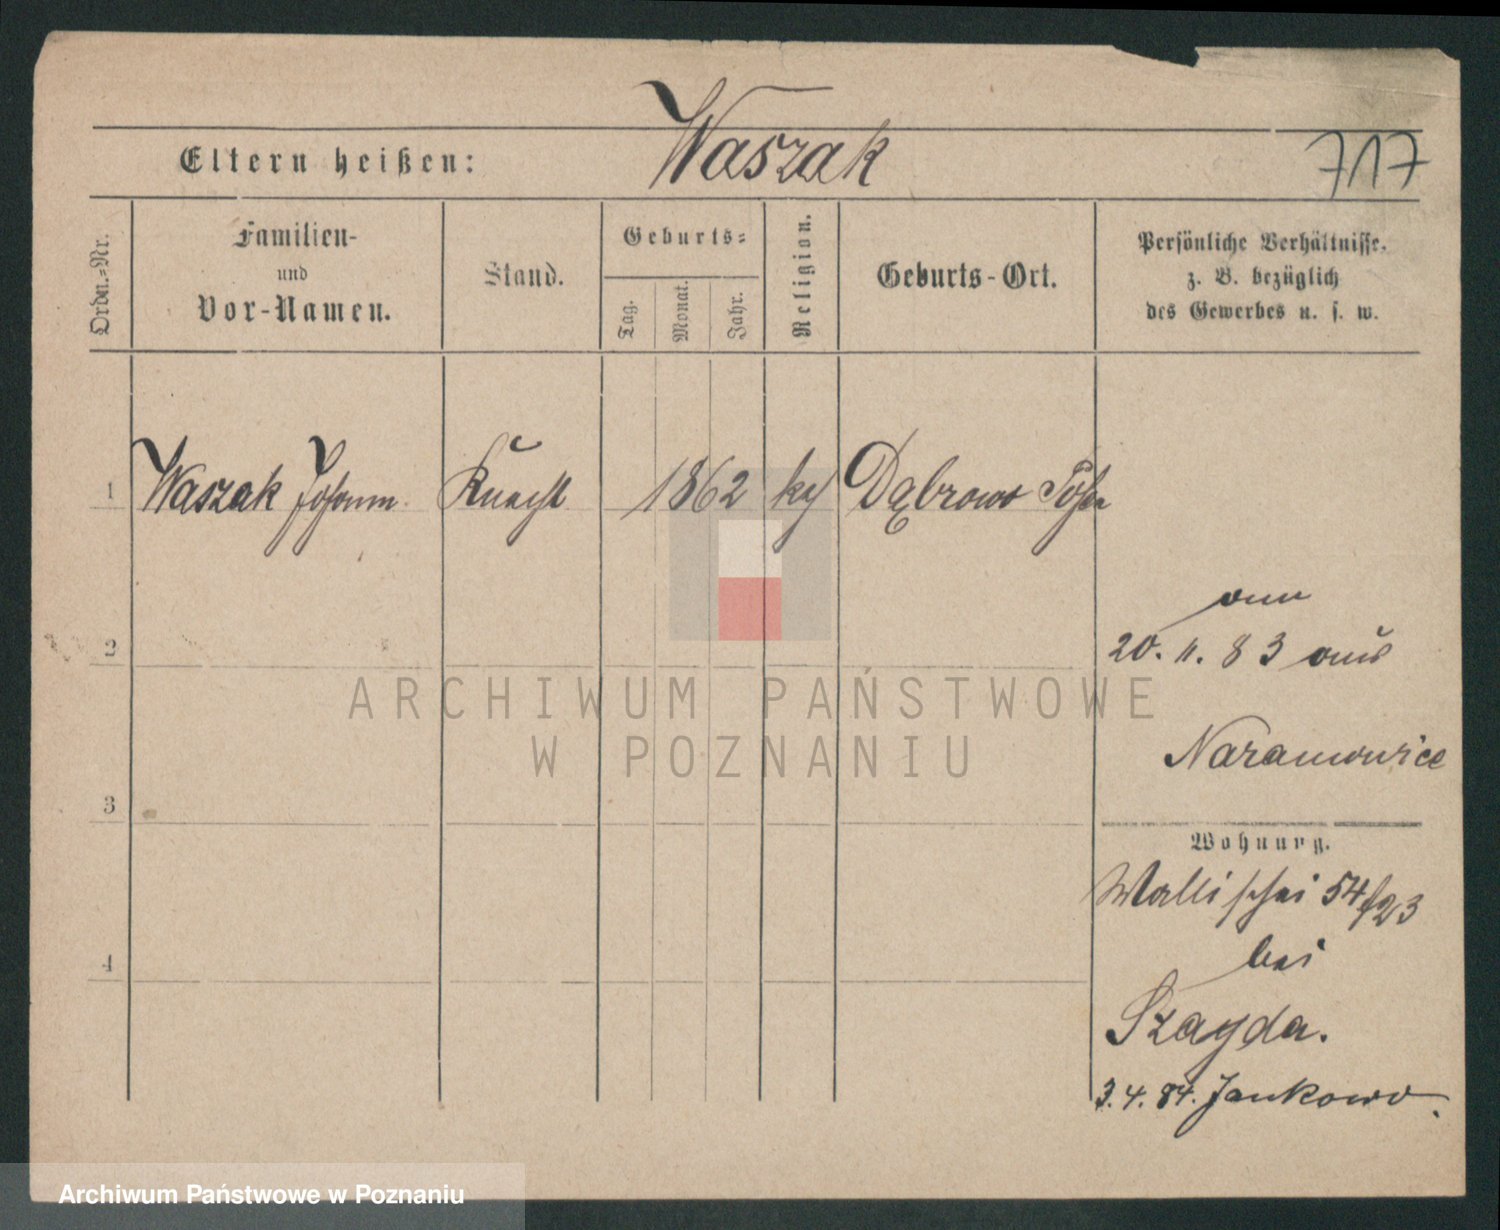 Waszak
Eltern heißen:
717
Ordn.-Nr.
Familien-
und
Vor-Namen.
Stand.
Geburts-
Tag.
Monat.
Jahr.
Religion.
Geburts-Ort.
Persönliche Verhältnisse.
z. B. bezüglich
des Gewerbes u. s. w.
1 Waszak Johann Knecht 1862 Dąbrowo
2
3
4
20. 11. 83 aus
Naramowice
Wohnung.
Wallischei 54/23
bei
Szayda.
3. 4. 84. Jankowo.
ARCHIWUM PAŃSTWOWE
W POZNANIU
Archiwum Państwowe w Poznaniu